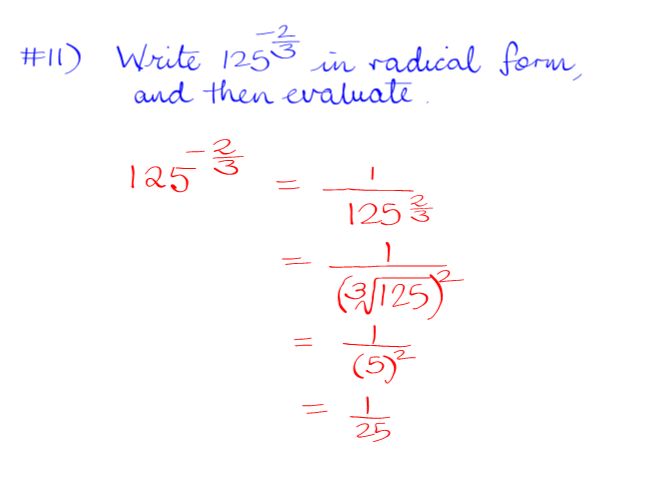 #11) Write 125^(-2/3) in radical form,
and then evaluate.
125^(-2/3) = 1/125^(2/3)
= 1/(∛125)²
= 1/(5)²
= 1/25